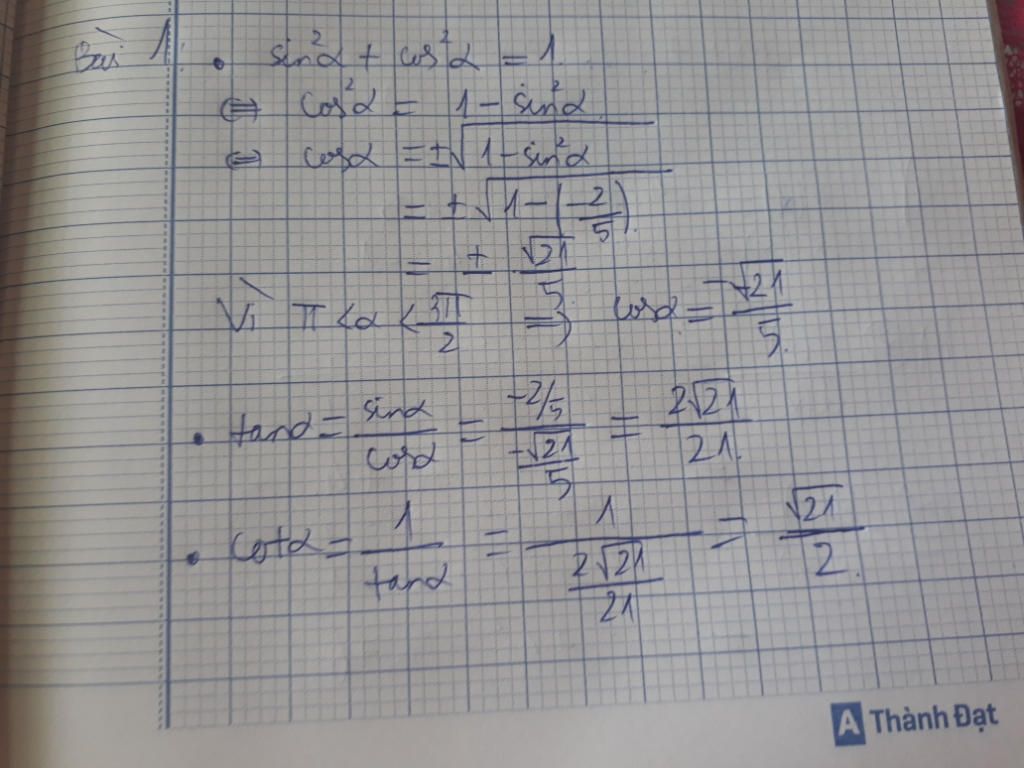 Bài 1: • sin²α + cos²α = 1.
⇔ cos²α = 1 - sin²α
⇔ cosα = ±√(1 - sin²α)
= ±√(1 - (-2/5))
= ± √21/5
Vì π < α < 3π/2 ⇒ cosα = -√21/5.
• tanα = sinα/cosα = (-2/5)/(-√21/5) = 2√21/21.
• cotα = 1/tanα = 1/(2√21/21) = √21/2.
A Thành Đạt